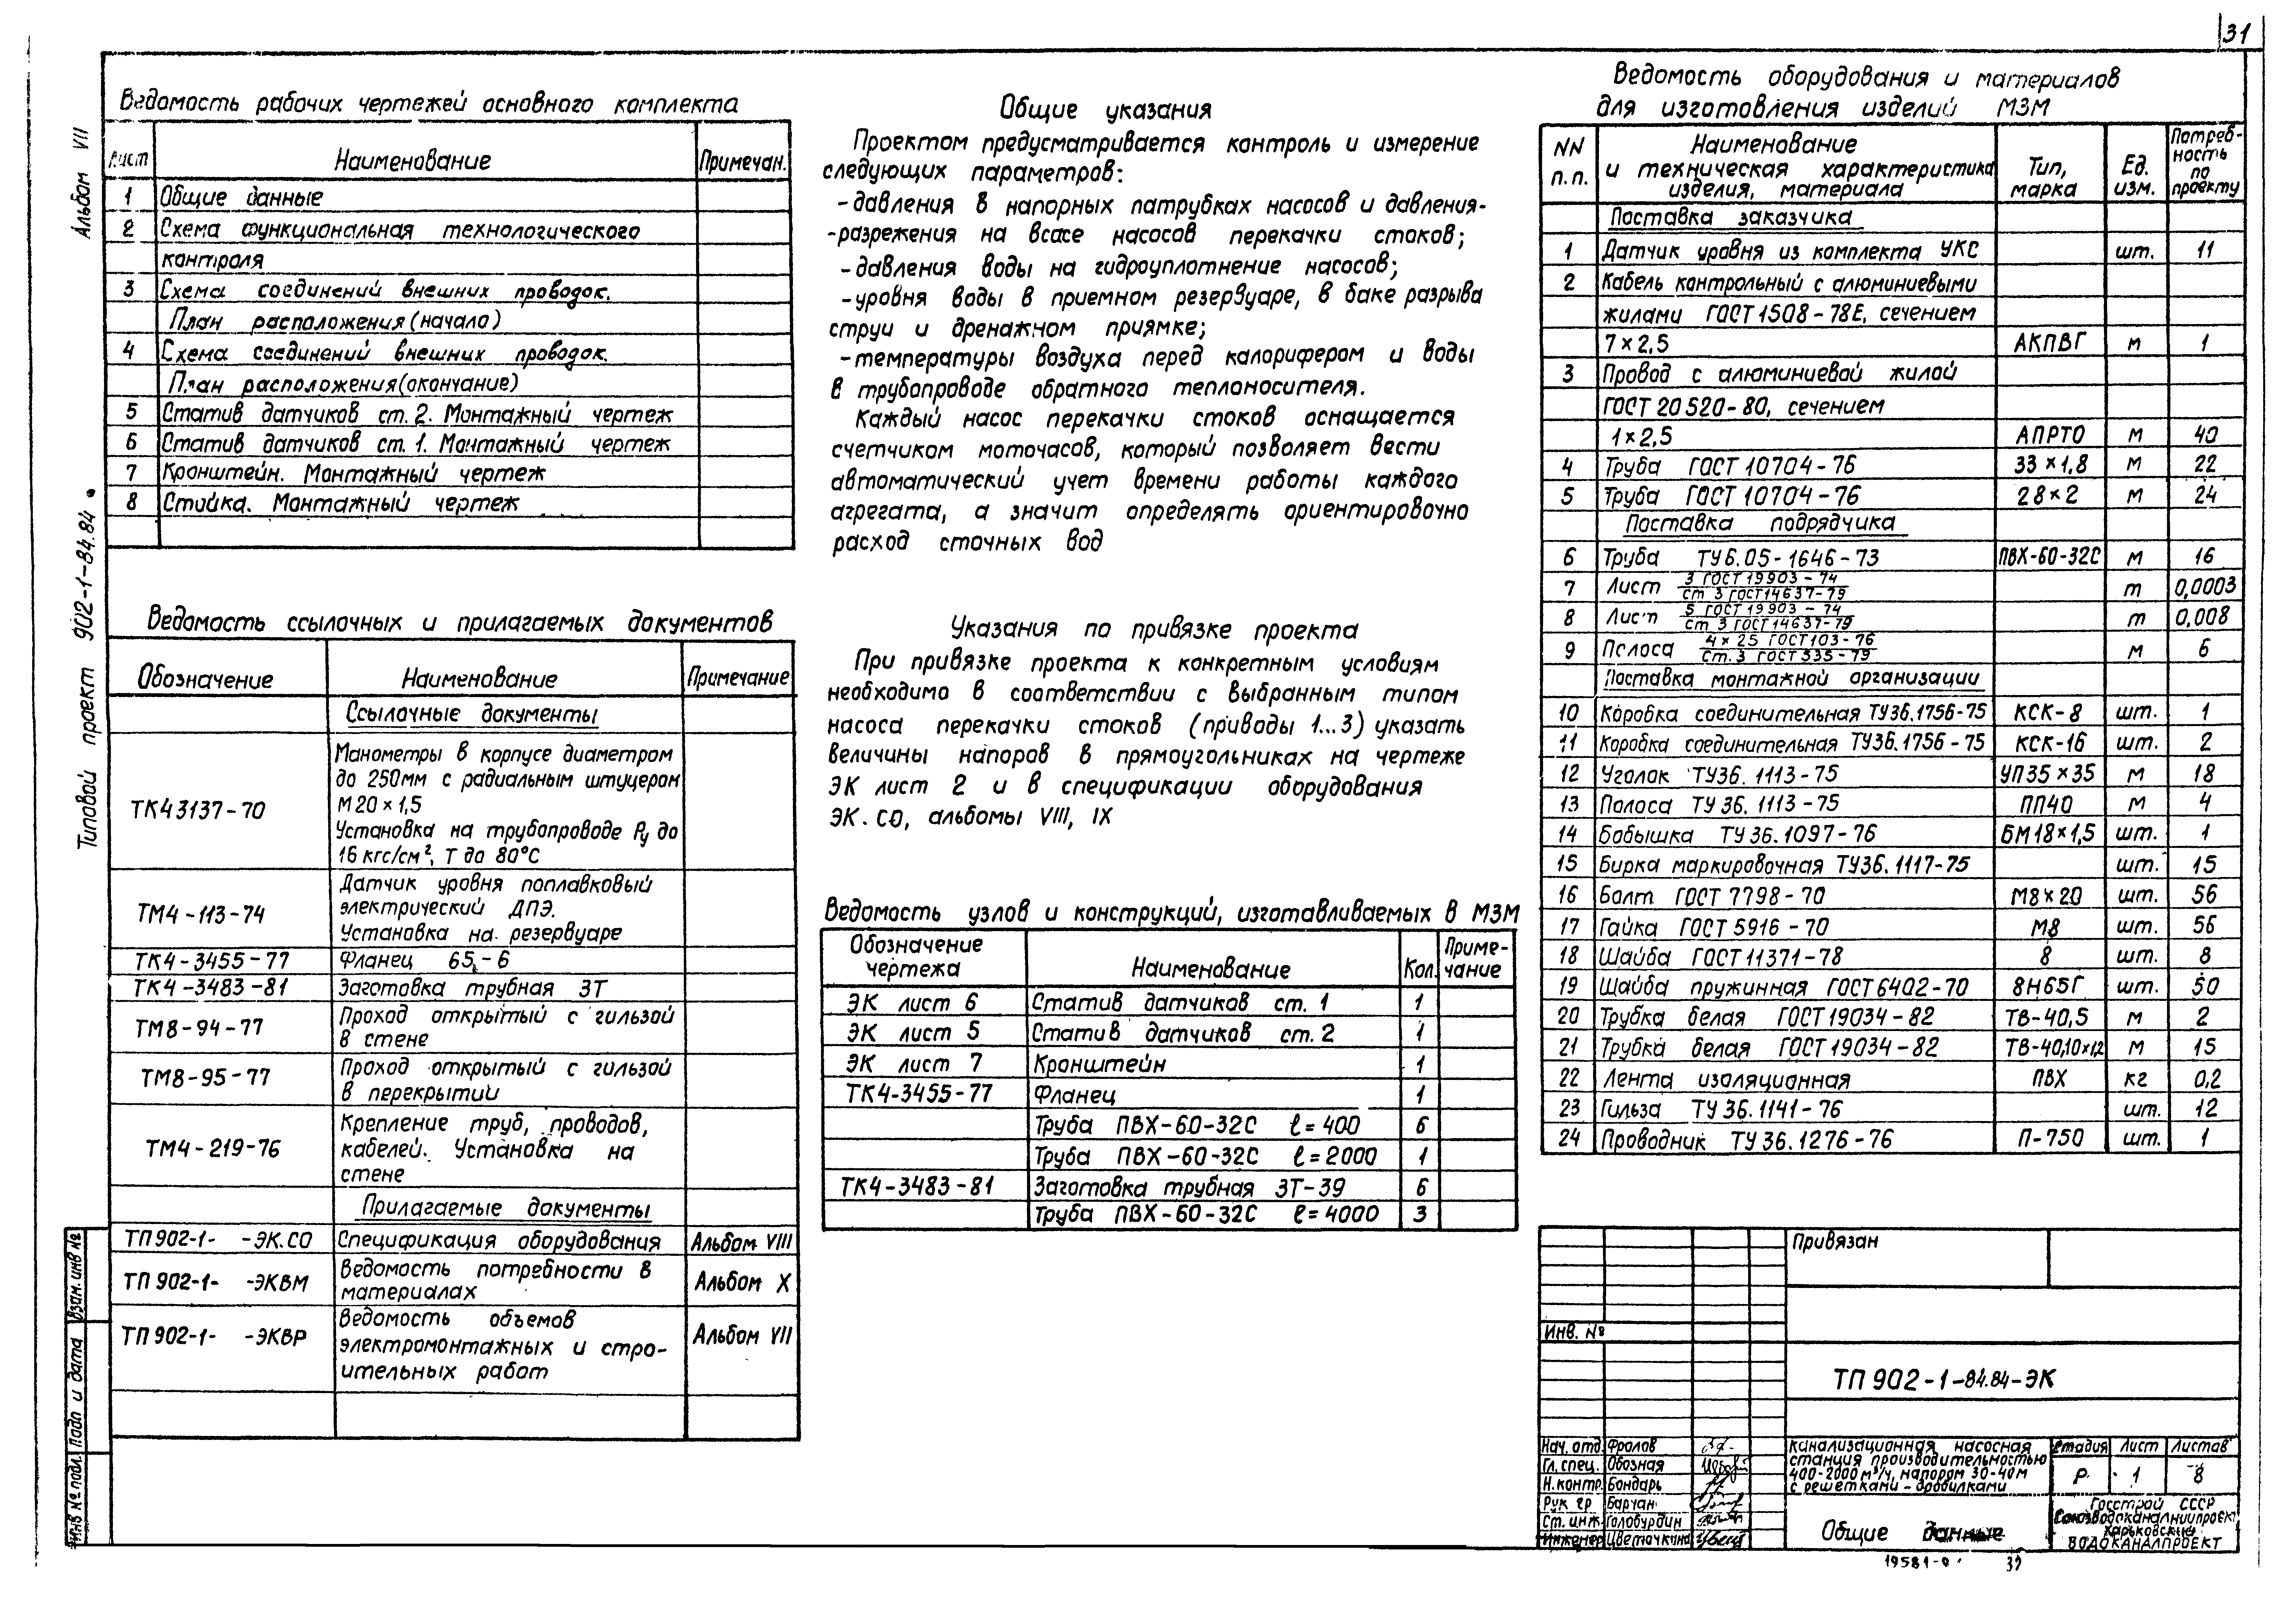 31
Альбом VII
Типовой проект 902-1-84.84
Ведомость рабочих чертежей основного комплекта
Лист Наименование Примечан.
1 Общие данные
2 Схема функциональная технологического
контроля
3 Схема соединений внешних проводок.
План расположения (начало)
4 Схема соединений внешних проводок.
План расположения (окончание)
5 Статив датчиков ст. 2. Монтажный чертеж
6 Статив датчиков ст. 1. Монтажный чертеж
7 Кронштейн. Монтажный чертеж
8 Стойка. Монтажный чертеж
Ведомость ссылочных и прилагаемых документов
Обозначение Наименование Примечание
Ссылочные документы
ТК4 3137-70 Манометры в корпусе диаметром
до 250мм с радиальным штуцером
М20×1,5
Установка на трубопроводе Ру до
16 кгс/см², Т до 80°С
ТМ4-113-74 Датчик уровня поплавковый
электрический ДПЭ.
Установка на резервуаре
ТК4-3455-77 Фланец 65-6
ТК4-3483-81 Заготовка трубная ЗТ
ТМ8-94-77 Проход открытый с гильзой
в стене
ТМ8-95-77 Проход открытый с гильзой
в перекрытии
ТМ4-219-76 Крепление труб, проводов,
кабелей. Установка на
стене
Прилагаемые документы
ТП 902-1- -ЭК.СО Спецификация оборудования Альбом VIII
ТП 902-1- -ЭКВМ Ведомость потребности в
материалах Альбом X
ТП 902-1- -ЭКВР Ведомость объемов
электромонтажных и стро-
ительных работ Альбом VII
Общие указания
Проектом предусматривается контроль и измерение
следующих параметров:
-давления в напорных патрубках насосов и давления-
-разрежения на всасе насосов перекачки стоков;
-давления воды на гидроуплотнение насосов;
-уровня воды в приемном резервуаре, в баке разрыва
струи и дренажном приямке;
-температуры воздуха перед калорифером и воды
в трубопроводе обратного теплоносителя.
Каждый насос перекачки стоков оснащается
счетчиком моточасов, который позволяет вести
автоматический учет времени работы каждого
агрегата, а значит определять ориентировочно
расход сточных вод
Указания по привязке проекта
При привязке проекта к конкретным условиям
необходимо в соответствии с выбранным типом
насоса перекачки стоков (приводы 1...3) указать
величины напоров в прямоугольниках на чертеже
ЭК лист 2 и в спецификации оборудования
ЭК.СО, альбомы VIII, IX
Ведомость узлов и конструкций, изготавливаемых в МЗМ
Обозначение чертежа Наименование Кол. Приме-
чание
ЭК лист 6 Статив датчиков ст. 1 1
ЭК лист 5 Статив датчиков ст. 2 1
ЭК лист 7 Кронштейн 1
ТК4-3455-77 Фланец 1
Труба ПВХ-60-32С ℓ=400 6
Труба ПВХ-60-32С ℓ=2000 1
ТК4-3483-81 Заготовка трубная ЗТ-39 6
Труба ПВХ-60-32С ℓ=4000 3
Ведомость оборудования и материалов
для изготовления изделий МЗМ
NN п.п. Наименование
и техническая характеристика
изделия, материала Тип,
марка Ед.
изм. Потреб-
ность
по
проекту
Поставка заказчика
1 Датчик уровня из комплекта УКС шт. 11
2 Кабель контрольный с алюминиевыми
жилами ГОСТ 1508-78Е, сечением
7×2,5 АКПВГ м 1
3 Провод с алюминиевой жилой
ГОСТ 20520-80, сечением
1×2,5 АПРТО м 40
4 Труба ГОСТ 10704-76 33×1,8 м 22
5 Труба ГОСТ 10704-76 28×2 м 24
Поставка подрядчика
6 Труба ТУ6.05-1646-73 ПВХ-60-32С м 16
7 Лист 3 ГОСТ 19903-74
ст 3 ГОСТ 14637-79 т 0,0003
8 Лист 5 ГОСТ 19903-74
ст 3 ГОСТ 14637-79 т 0,008
9 Полоса 4×25 ГОСТ 103-76
Ст.3 ГОСТ 535-79 м 6
Поставка монтажной организации
10 Коробка соединительная ТУ36.1756-75 КСК-8 шт. 1
11 Коробка соединительная ТУ36.1756-75 КСК-16 шт. 2
12 Уголок ТУ36.1113-75 УП35×35 м 18
13 Полоса ТУ36.1113-75 ПП40 м 4
14 Бобышка ТУ36.1097-76 БМ18×1,5 шт. 1
15 Бирка маркировочная ТУ36.1117-75 шт. 15
16 Болт ГОСТ 7798-70 М8×20 шт. 56
17 Гайка ГОСТ 5916-70 М8 шт. 56
18 Шайба ГОСТ 11371-78 8 шт. 8
19 Шайба пружинная ГОСТ 6402-70 8Н65Г шт. 50
20 Трубка белая ГОСТ 19034-82 ТВ-40,5 м 2
21 Трубка белая ГОСТ 19034-82 ТВ-40,10×1,2 м 15
22 Лента изоляционная ПВХ кг 0,2
23 Гильза ТУ36.1141-76 шт. 12
24 Проводник ТУ36.1276-76 П-750 шт. 1
Привязан
Инв. №
ТП 902-1-84.84-ЭК
Нач. отд Фролов
Гл. спец. Обозная
Н.контр. Бондарь
Рук гр Барчан
Ст. инж Голобурдин
Инженер Цветочкина
Канализационная насосная
станция производительностью
400-2000 м³/ч, напором 30-40м
с решетками-дробилками
Стадия Лист Листов
Р 1 8
Общие данные
Госстрой СССР
Союзводоканалниипроект
Харьковский
Водоканалпроект
Взам. инв №
Подп и дата
Инв № подл.